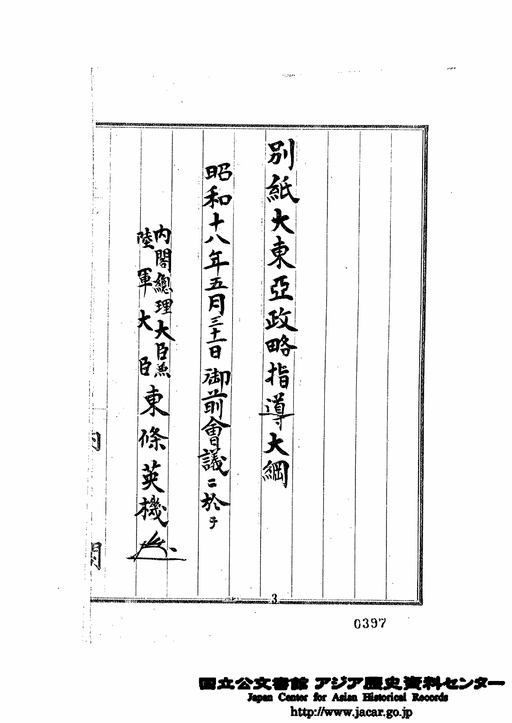 別紙大東亞政略指導大綱
昭和十八年五月三十一日御前會議ニ於テ
內閣總理大臣兼
陸軍大臣
東條英機
內
閣
3
0397
国立公文書館 アジア歴史資料センター
Japan Center for Asian Historical Records
http://www.jacar.go.jp